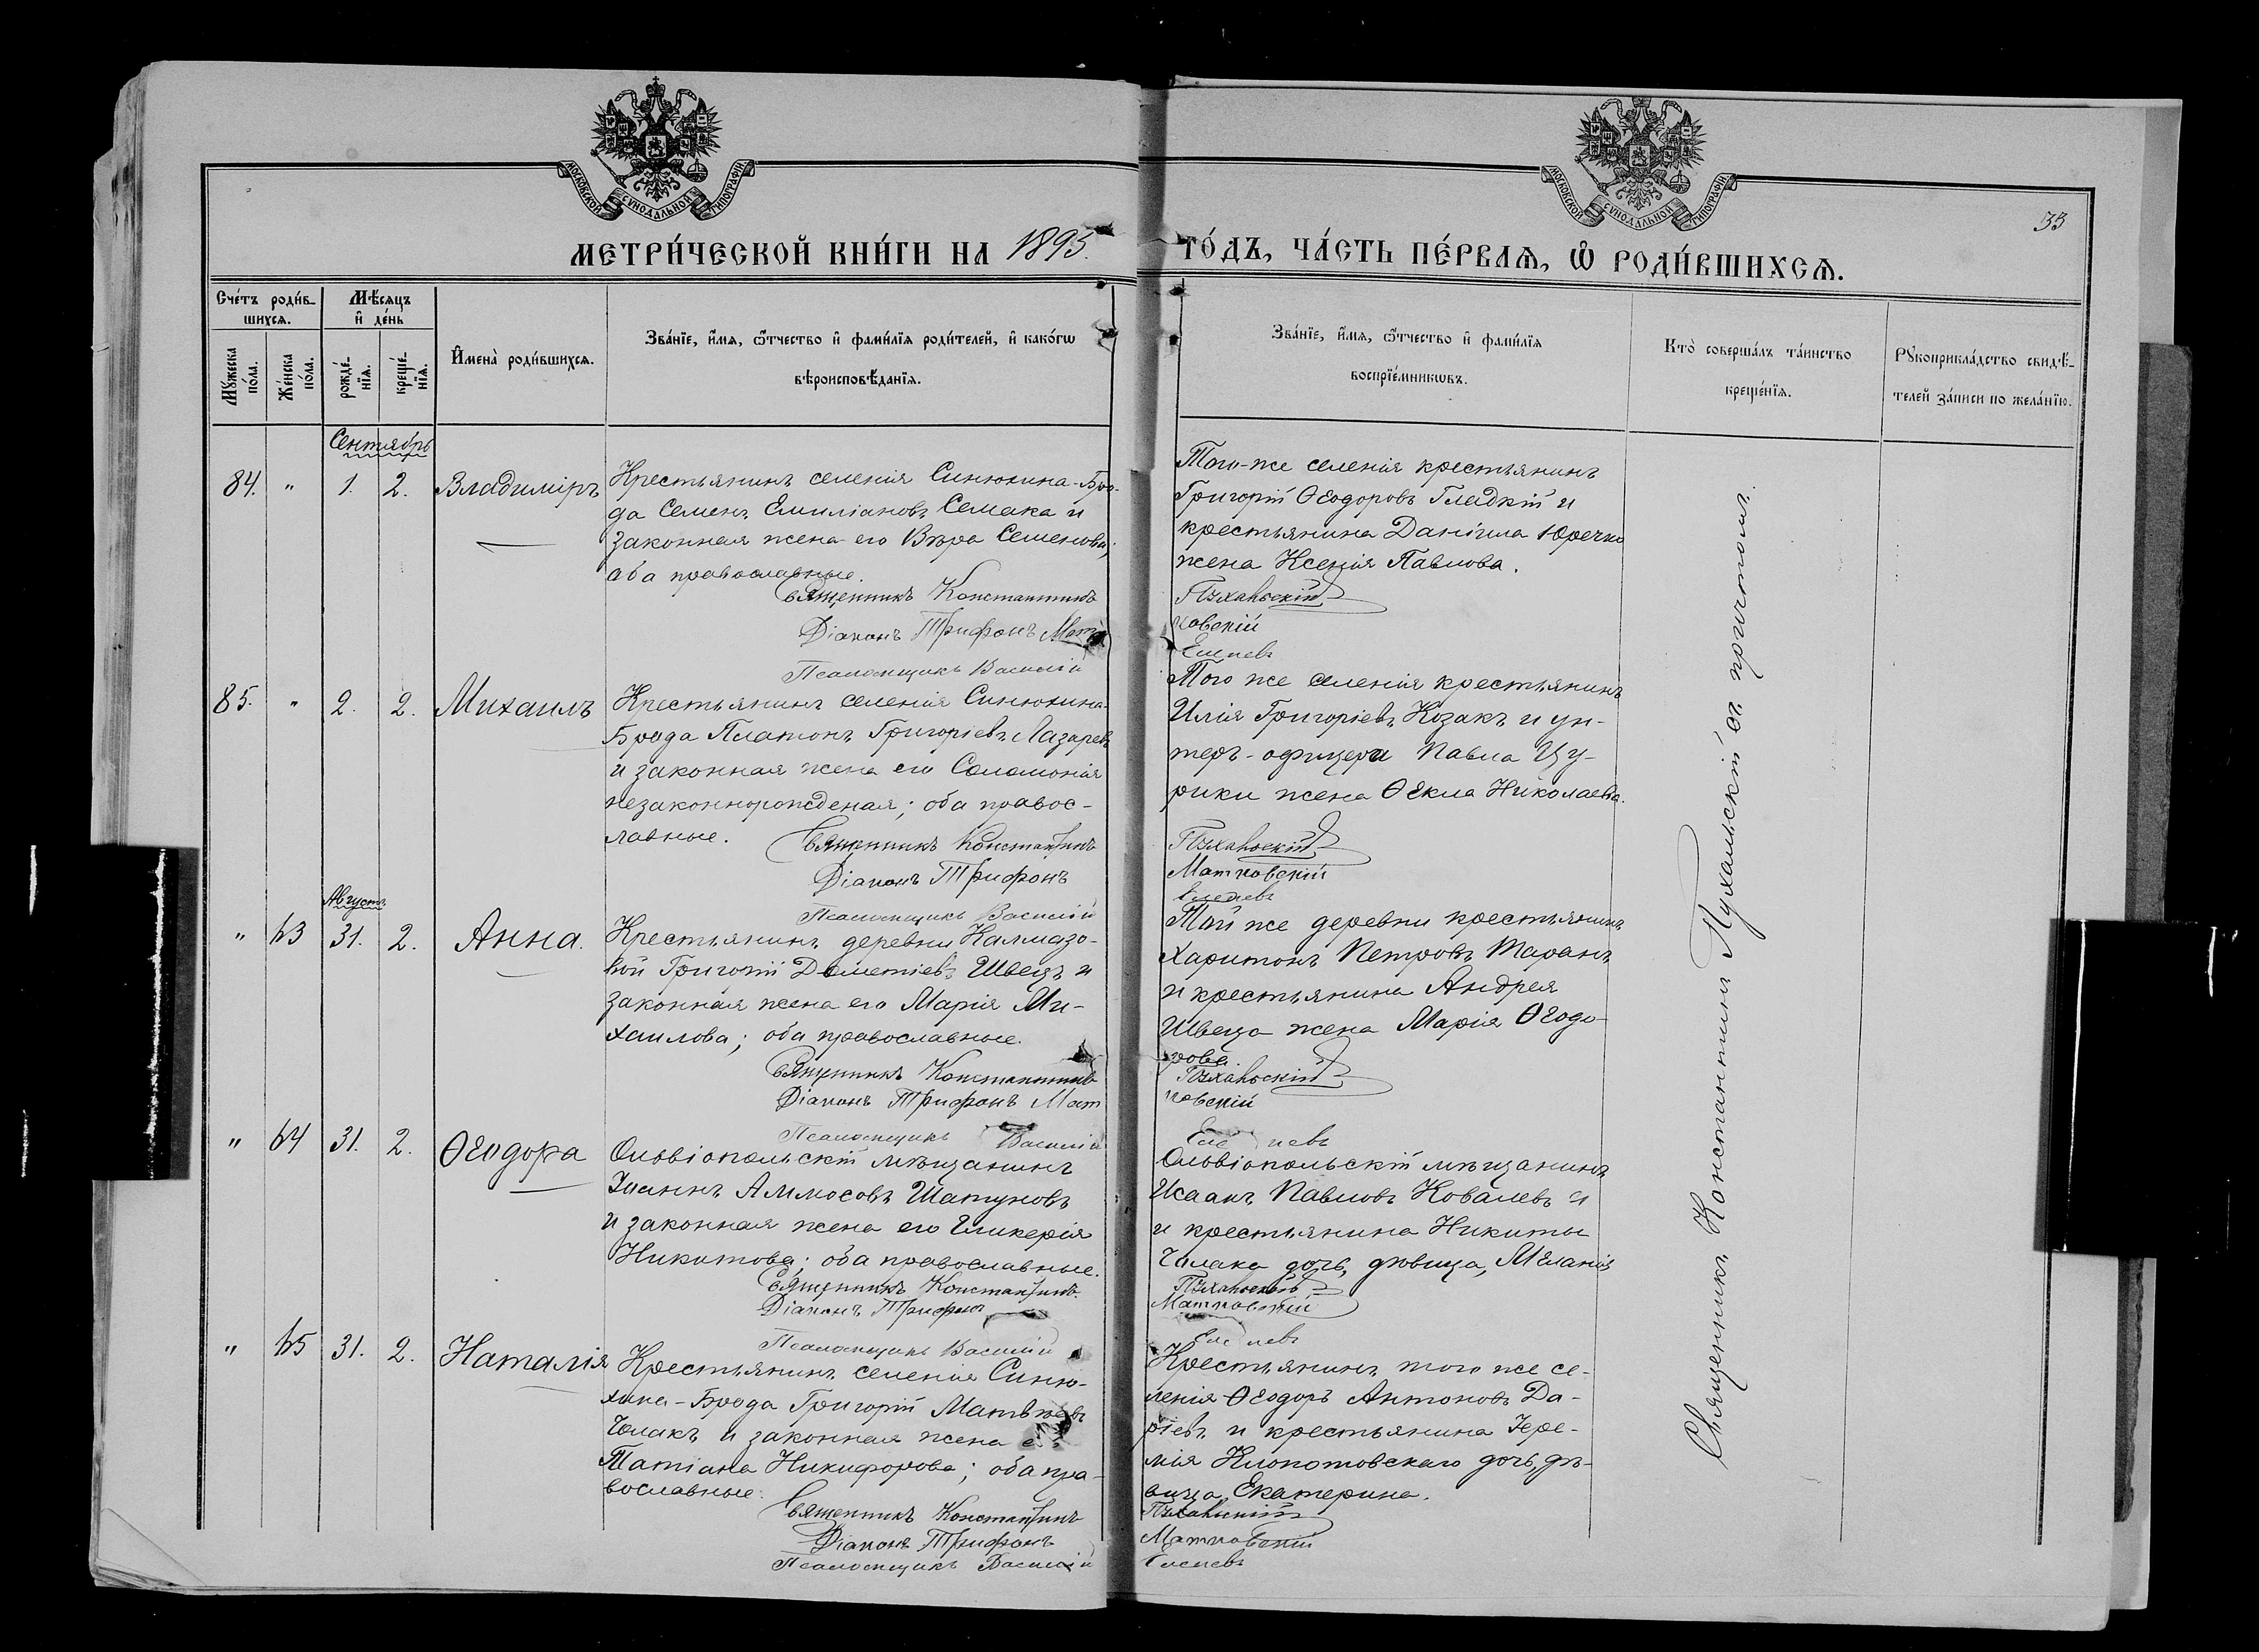 МОСКОВСКОЙ СУНОДАЛЬНОЙ ТИПОГРАФІИ
МОСКОВСКОЙ СУНОДАЛЬНОЙ ТИПОГРАФІИ
33
МЕТРИ́ЧЕСКОЙ КНИ́ГИ НА 1895.
ГО́ДЪ, ЧА́СТЬ ПЕ́РВАѦ, Ѡ҆ РОДИ́ВШИХСѦ.
Сче́тъ роди́в-
шихсѧ.
Мѣ́сѧцъ
и҆ де́нь
Мꙋжеска
по́ла.
Же́нска
по́ла.
рожде́-
нїѧ.
креще́-
нїѧ.
И҆мена̀ роди́вшихсѧ.
Зва́нїе, и҆́мѧ, ѻ҆́тчество и҆ фами́лїѧ роди́телей, и҆ како́гѡ
вѣроисповѣ́данїѧ.
Зва́нїе, и҆́мѧ, ѻ҆́тчество и҆ фами́лїѧ
воспрїе́мникѡвъ.
Кто̀ соверша́лъ та́инство
креще́нїѧ.
Рꙋкоприкла́дство свидѣ́-
телей за́писи по жела́нїю.
Сентябрь
84. " 1. 2. Владиміръ
Крестьянинъ селенія Синюхина-Бро-
да Семенъ Емиліановъ Семака и
законная жена его Вѣра Семенова;
оба православные.
Священникъ Константинъ
Діаконъ Трифонъ Мат
Псаломщикъ Василій
Того-же селенія крестьянинъ
Григорій Ѳеодоровъ Гладкій и
крестьянина Даніила Юречко
жена Ксенія Павлова.
Пухальскій
ковскій
85. " 2. 2. Михаилъ
Крестьянинъ селенія Синюхина-
Брода Платонъ Григоріевъ Лазаревъ
и законная жена его Соломонія
незаконнорожденая; оба правос-
лавные.
Священникъ Константинъ
Діаконъ Трифонъ
Псаломщикъ Василій
Того же селенія крестьянинъ
Илія Григоріевъ Козакъ и ун-
теръ-офицера Павла Цу-
рики жена Ѳекла Николаева.
Пухальскій
Матковскій
Августъ
" 63 31. 2. Анна.
Крестьянинъ деревни Калмазо-
вой Григорій Дометіевъ Швецъ и
законная жена его Марія Ми-
хаилова; оба православные.
Священникъ Константинъ
Діаконъ Трифонъ Мат
Псаломщикъ Василій
Той же деревни крестьянинъ
Харитонъ Петровъ Таранъ
и крестьянина Андрея
Швеца жена Марія Ѳеодо-
рова.
Пухальскій
ковскій
" 64 31. 2. Ѳеодора
Ольвіопольскій мѣщанинъ
Іоаннъ Аммосовъ Шатуновъ
и законная жена его Гликерія
Никитова; оба православные.
Священникъ Константинъ
Діаконъ Трифонъ
Псаломщикъ Василій
Ольвіопольскій мѣщанинъ
Исаакъ Павловъ Ковалевъ и
и крестьянина Никиты
Чолака дочь, дѣвица, Меланія
Пухальскій
Матковскій
" 65 31. 2. Наталія
Крестьянинъ селенія Синю-
хина-Брода Григорій Матѳеевъ
Чолакъ и законная жена его
Татіана Никифорова; оба пра-
вославные.
Священникъ Константинъ
Діаконъ Трифонъ
Псаломщикъ Василій
Крестьянинъ того же се-
ленія Ѳеодоръ Антоновъ Да-
ріевъ и крестьянина Іере-
мія Клопотовскаго дочь, дѣ-
вица, Екатерина.
Пухальскій
Матковскій
Священникъ Константинъ Пухальскій съ причтомъ.